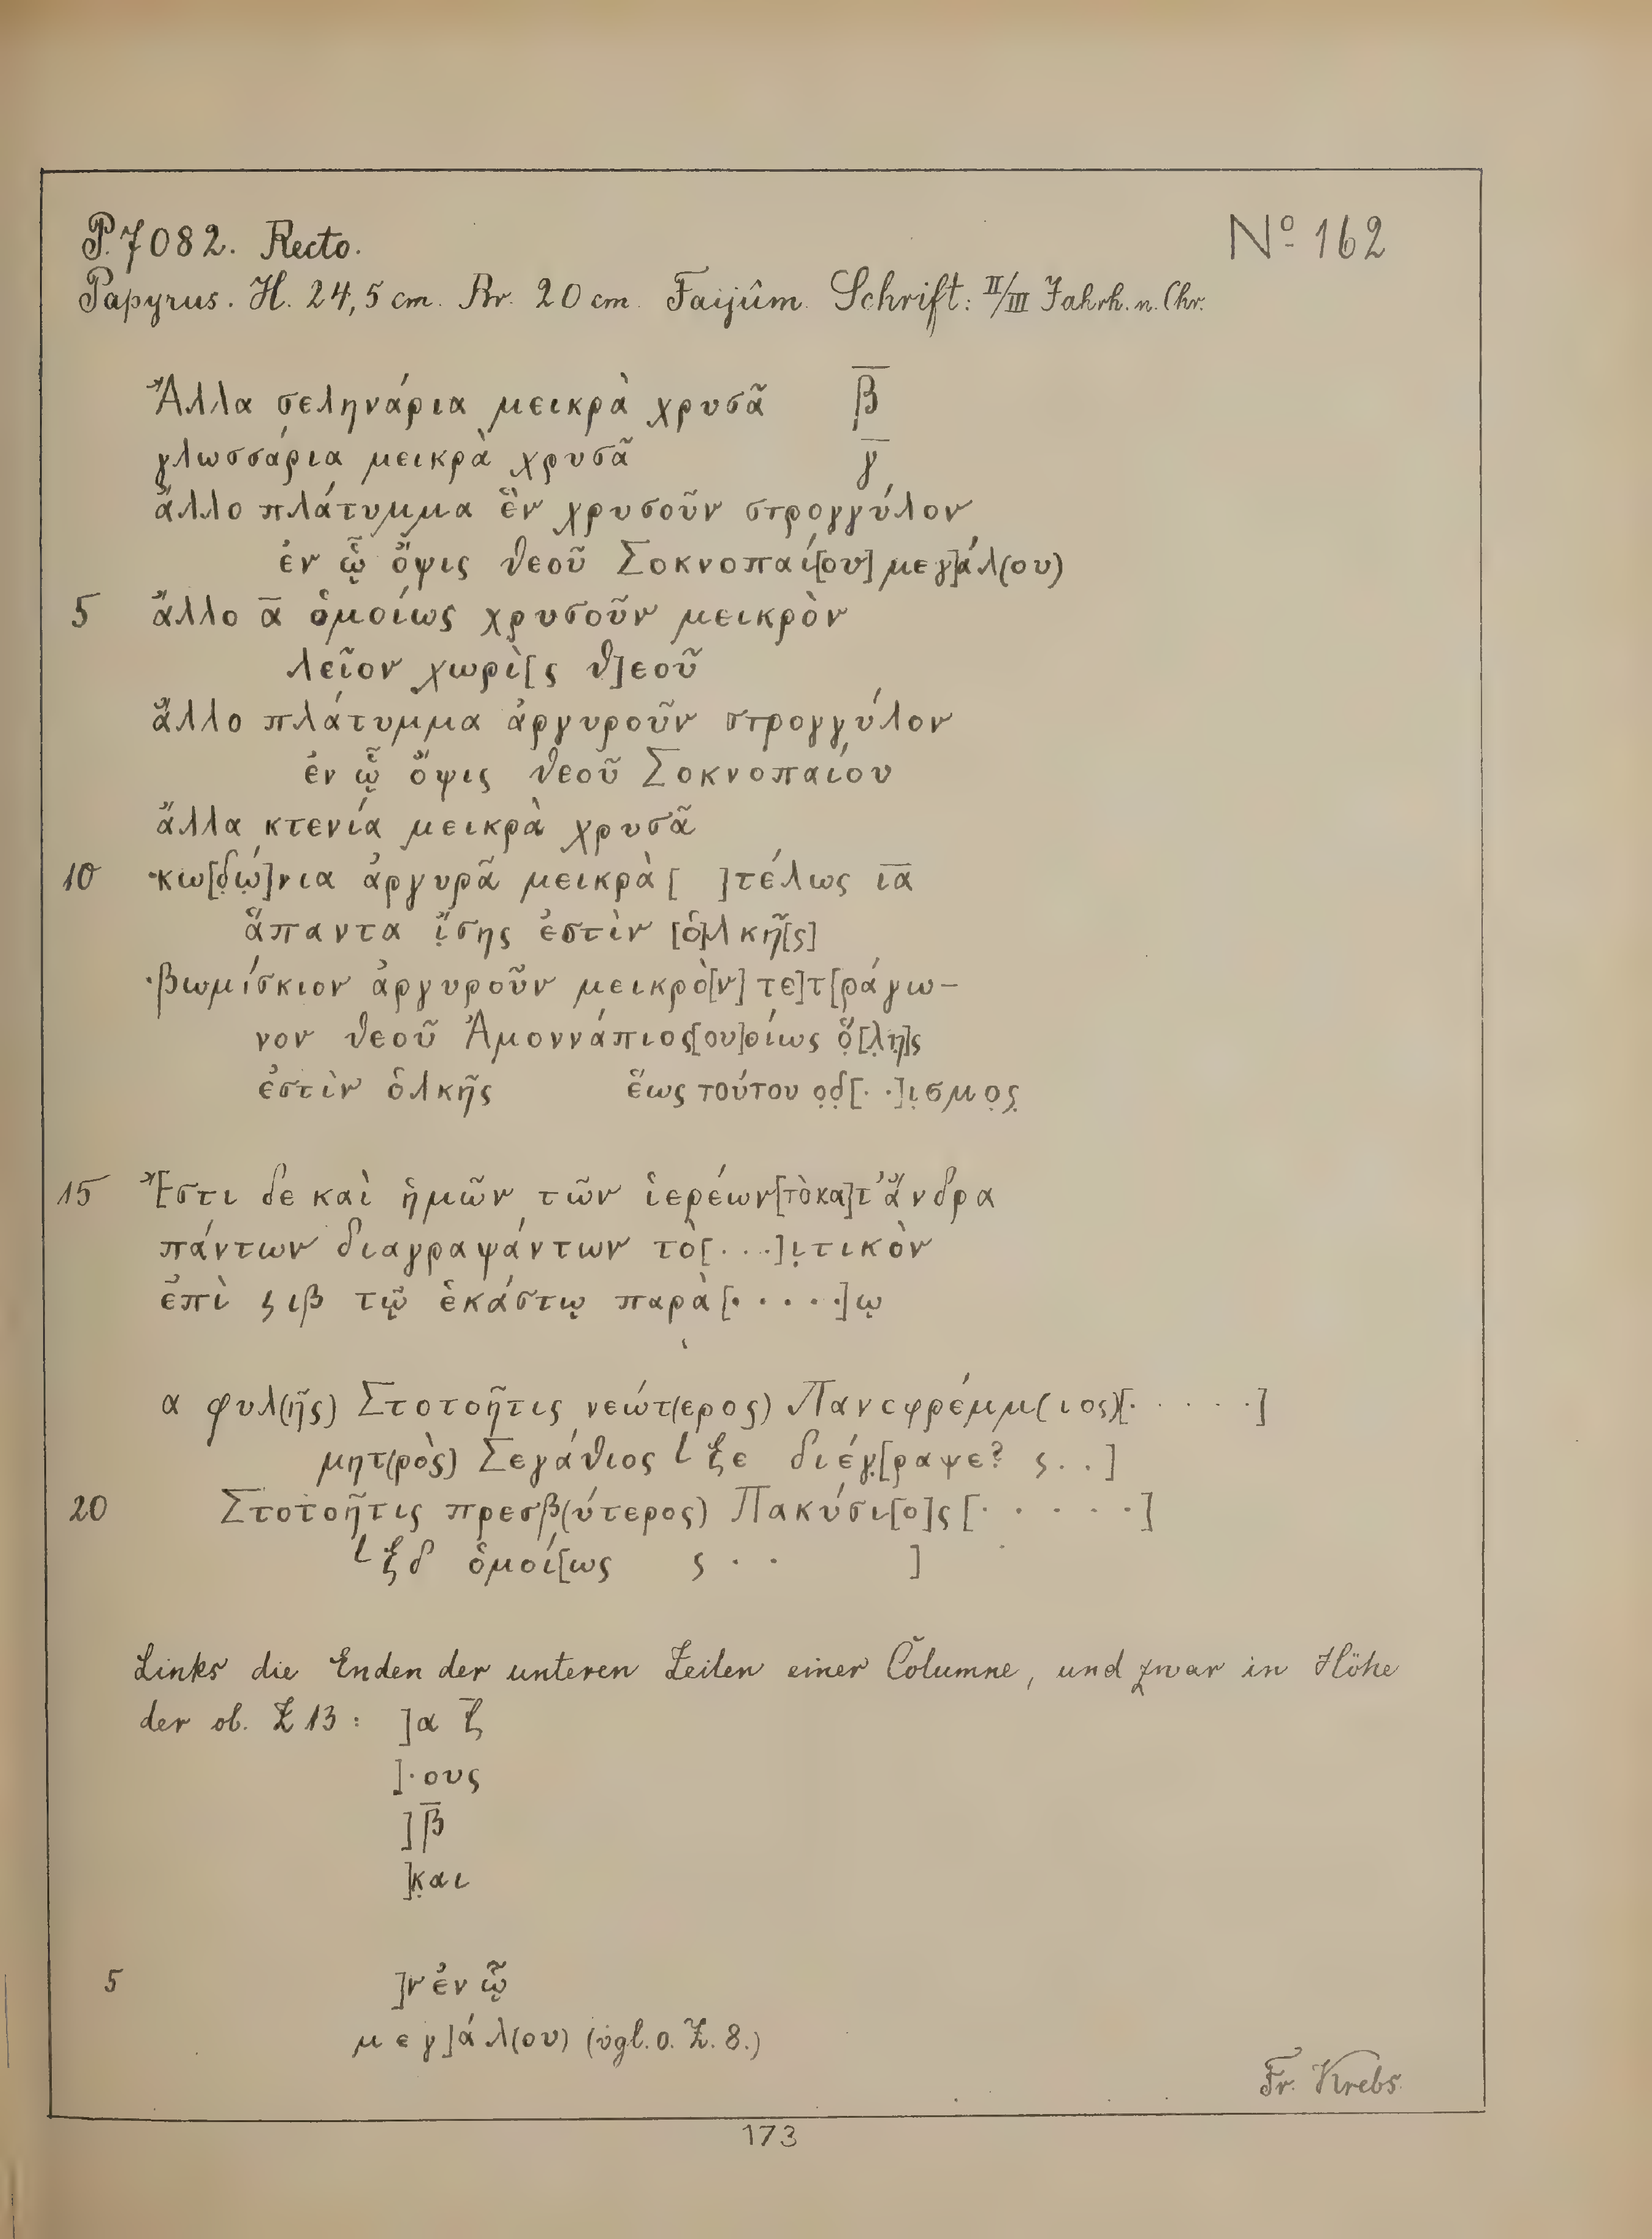 P. 7082. Recto. Nº 162
Papyrus. H. 24,5 cm. Br. 20 cm. Faijûm. Schrift: II/III Jahrh. n. Chr.
Ἄλλα σεληνάρια μεικρὰ χρυσᾶ β̅
γλωσσάρια μεικρὰ χρυσᾶ γ̅
ἄλλο πλάτυμμα ἓν χρυσοῦν στρογγύλον
ἐν ᾧ ὄψις θεοῦ Σοκνοπαί[ου] μεγ]άλ(ου)
5 ἄλλο α̅ ὁμοίως χρυσοῦν μεικρὸν
λεῖον χωρὶ[ς θ]εοῦ
ἄλλο πλάτυμμα ἀργυροῦν στρογγύλον
ἐν ᾧ ὄψις θεοῦ Σοκνοπαίου
ἄλλα κτενία μεικρὰ χρυσᾶ
10 κω[δώ]νια ἀργυρᾶ μεικρὰ [ ]τέλως ι̅α̅
ἅπαντα ἴ̣σης ἐστὶν [ὁ]λκῆ[ς]
βωμίσκιον ἀργυροῦν μεικρὸ[ν] τε]τ[ράγω-
νον θεοῦ Ἀμοννάπιος[ου]οίως ὅ̣[λη]ς
ἐστὶν ὁλκῆς ἕως τούτου ο̣δ̣[· ·]ι̣σμο̣ς̣
15 Ἔστι δε καὶ ἡμῶν τῶν ἱερέων[τὸ κα]τ’ ἄνδρα
πάντων διαγραψάντων τὸ[· · ·]ι̣τικὸν
ἐπὶ ϛ ιβ τῷ ἑκάστῳ παρὰ [· · · · ·]ῳ
α φυλ(ῆς) Στοτοῆτις νεώτ(ερος) Πανεφρέμμ(ιος)[· · · · ·]
μητ(ρὸς) Σεγάθιος L ξε διέγ̣[ραψε? ϛ . . ]
20 Στοτοῆτις πρεσβ(ύτερος) Πακύσι[ο]ς [· · · · ·]
L ξδ ὁμοί[ως ϛ · · ]
Links die Enden der unteren Zeilen einer Columne, und zwar in Höhe
der ob. Z 13: ]α ζ̅
]· ους
] β̅
]κ̣αι
5 ]ν ἐν ᾧ
μεγ]άλ(ου) (vgl. o. Z. 8.)
Fr. Krebs.
173